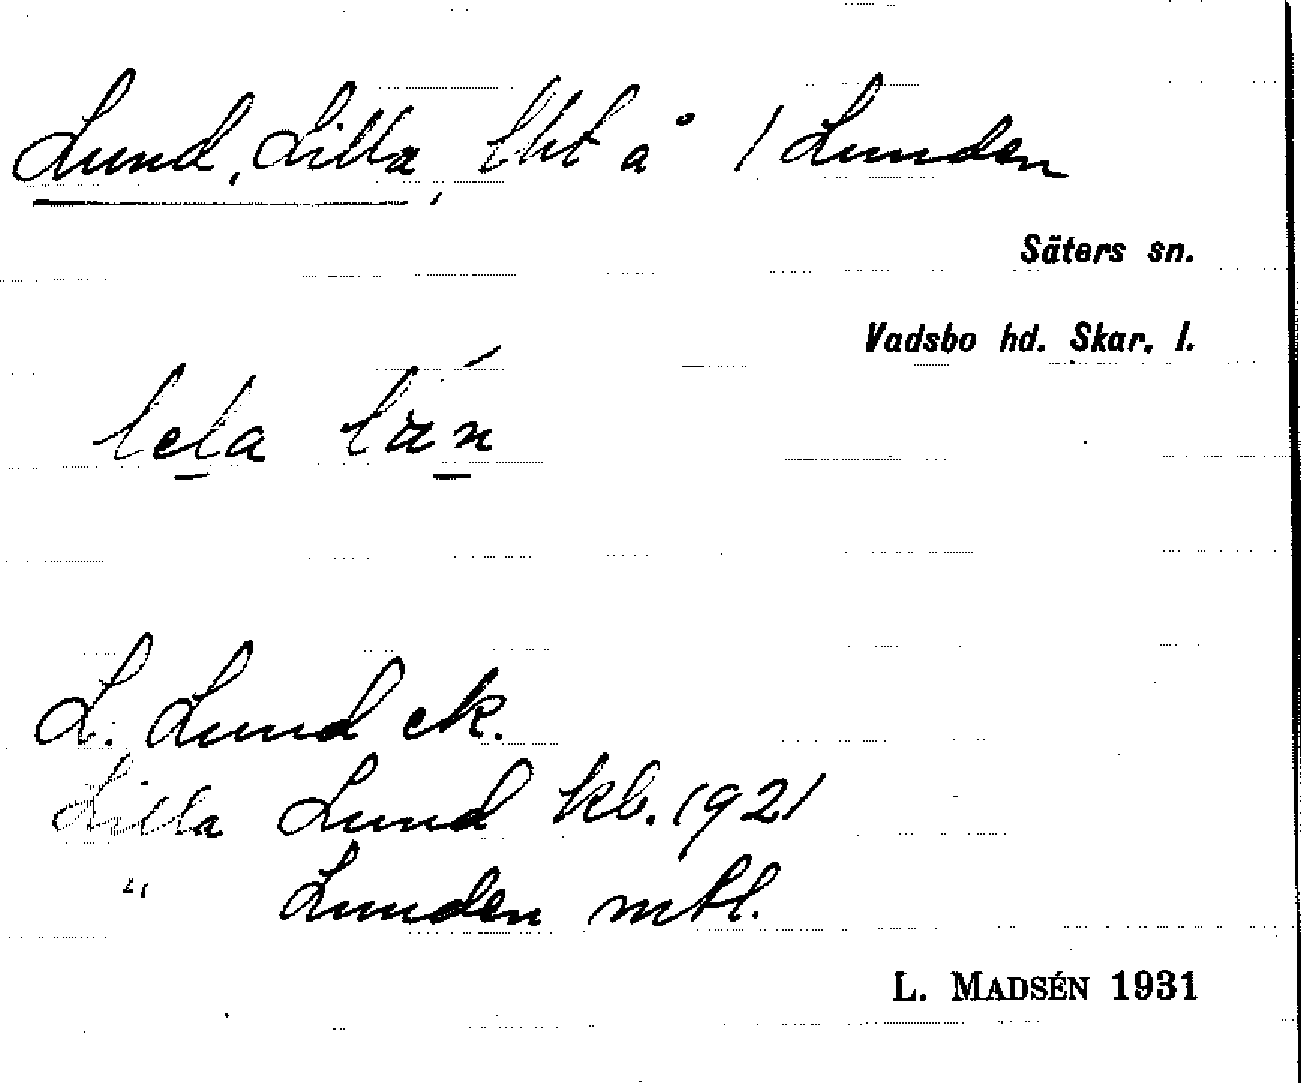 Lund, Lilla, lht å 1 Lunden
Säters sn.
Vadsbo hd. Skar. l.
L. Lund ek.
Lilla Lund kb. 1921
" Lunden mtl.
L. MADSÉN 1931